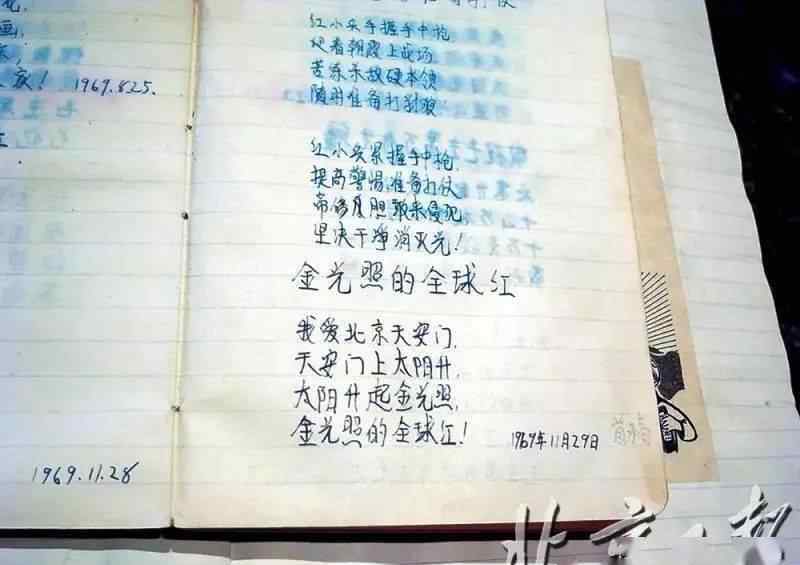 花,
画,
1969.8.25.
1969.11.28
红小兵手握手中枪,
迎着朝霞上战场
苦练杀敌硬本领
随时准备打豺狼
红小兵紧握手中枪,
提高警惕,准备打仗
帝修反胆敢来侵犯,
坚决干净消灭光!
金光照的全球红
我爱北京天安门,
天安门上太阳升,
太阳升起金光照,
金光照的全球红!
1969年11月29日
首稿
北京